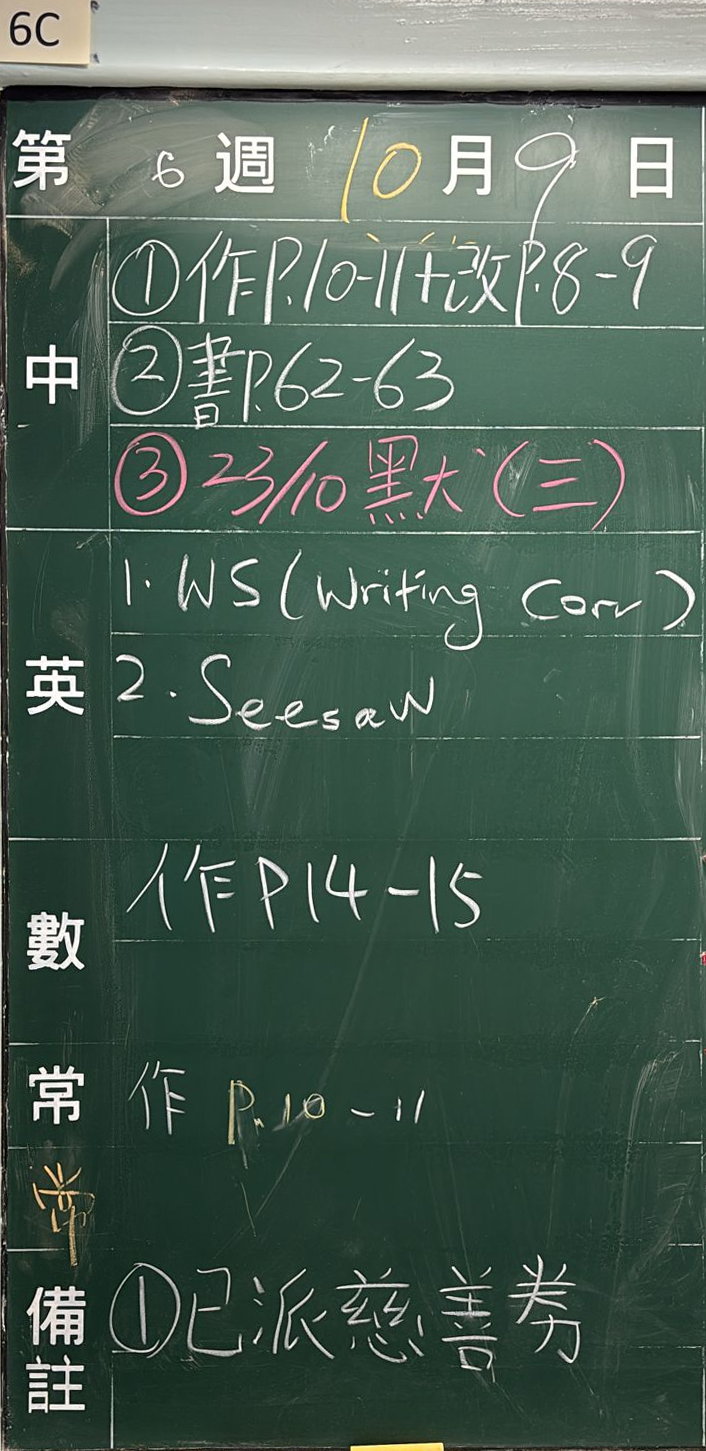 6C
第 6 週 10 月 9 日
中
①作P.10-11+改P.8-9
②書P.62-63
③23/10 默(三)
英
1. WS (Writing Corr)
2. Seesaw
數
作P14-15
常
作 P.10-11
常
備註
①已派慈善券